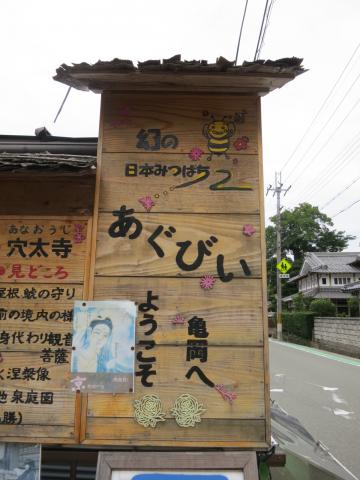 幻の
日本みつばち52
あぐびい
ようこそ
亀岡へ
あなおうじ
穴太寺
見どころ
屋根 鯱の守り
前の境内の様
身代わり観音
菩薩
涅槃像
池泉庭園
勝)